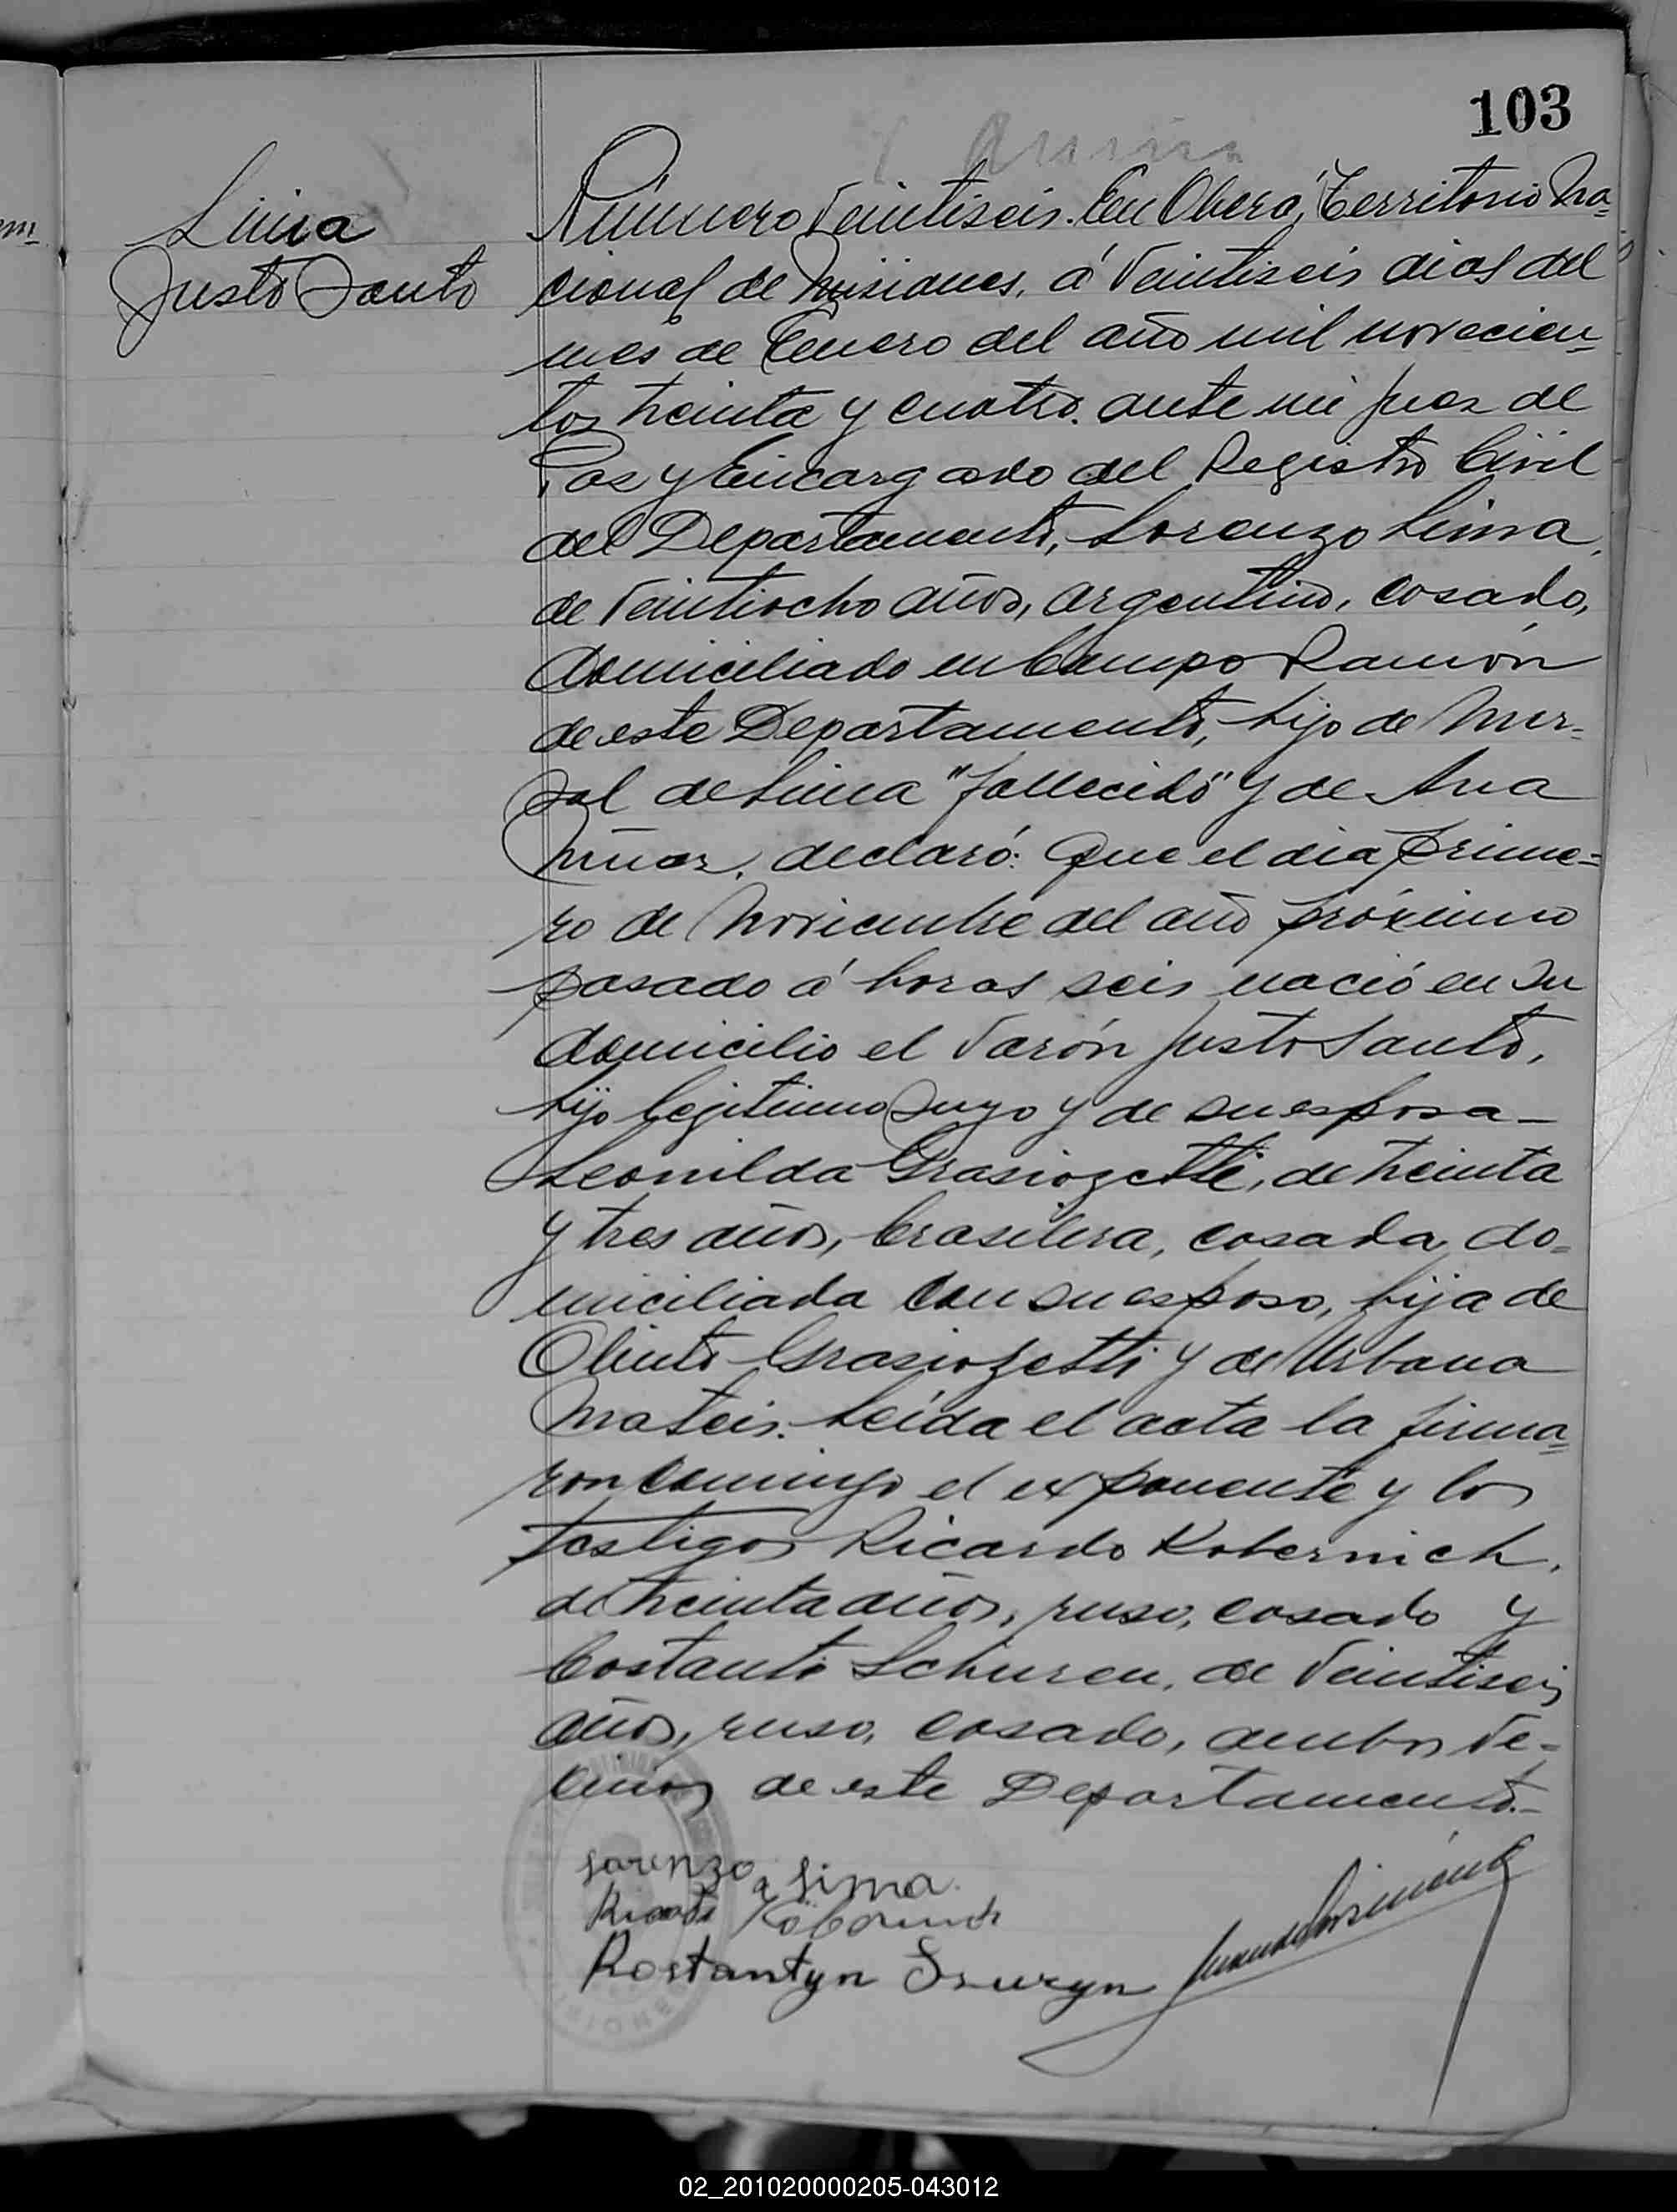 103
Lima
Justo Santo
Número Veintiseis. En Oberá, Territorio Na=
cional de Misiones, á Veintiseis dias del
mes de Enero del año mil novecien=
tos treinta y cuatro. ante mi Juez de
Paz y Encargado del Registro Civil
del Departamento, Lorenzo Lima,
de Veintiocho años, argentino, casado,
domiciliado en Campo Ramón
de este Departamento, hijo de
de Lima "fallecido" y de Ana
declaró: Que el dia prime=
ro de Noviembre del año próximo
pasado á horas seis nació en su
domicilio el Varón Justo Santo,
hijo legitimo suyo y de su esposa
Leonilda Grasiozetti, de treinta
y tres años, brasilera, casada, do=
miciliada con su esposo, hija de
Olinto Grasiozetti y de Urbana
Mateis. Leida el acta la firma=
ron conmigo el exponente y los
testigos Ricardo Kobernich,
de treinta años, ruso, casado y
Costanto Schuren, de Veintiseis
años, ruso, casado, ambos Ve=
cinos de este Departamento.-
Lorenzo a Lima.
Kostantyn
02_201020000205-043012